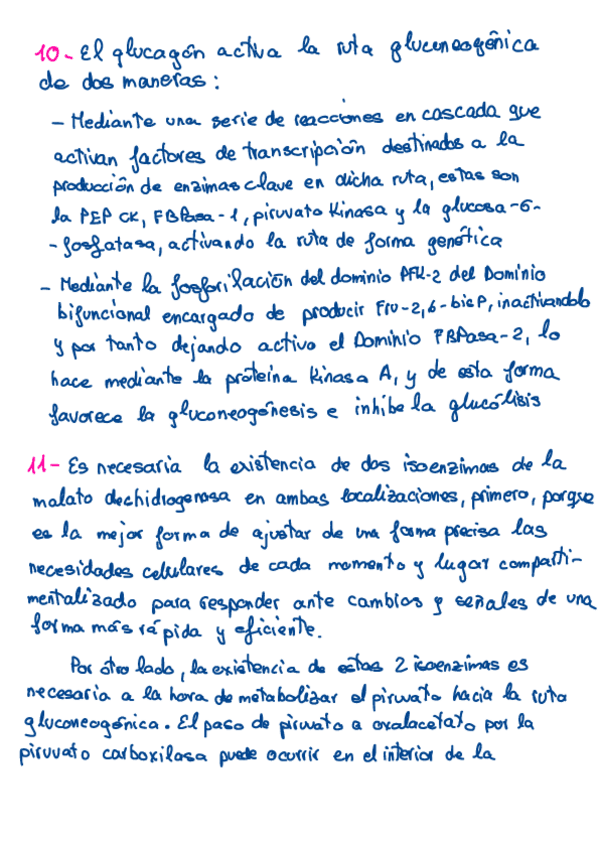 10- El glucagón activa la ruta gluconeogénica
de dos maneras:
- Mediante una serie de reacciones en cascada que
activan factores de transcripción destinados a la
producción de enzimas clave en dicha ruta, estas son
la PEP CK, FBPasa-1, piruvato kinasa y la glucosa-6-
-fosfatasa, activando la ruta de forma genética
- Mediante la fosforilación del dominio PFK-2 del Dominio
bifuncional encargado de producir Fru-2,6-bisP, inactivandolo
y por tanto dejando activo el Dominio FBPasa-2, lo
hace mediante la proteína kinasa A, y de esta forma
favorece la gluconeogénesis e inhibe la glucólisis
11- Es necesaria la existencia de dos isoenzimas de la
malato deshidrogenasa en ambas localizaciones, primero, porque
es la mejor forma de ajustar de una forma precisa las
necesidades celulares de cada momento y lugar comparti-
mentalizado para responder ante cambios y señales de una
forma más rápida y eficiente.
Por otro lado, la existencia de estas 2 isoenzimas es
necesaria a la hora de metabolizar el piruvato hacia la ruta
gluconeogénica. El paso de piruvato a oxalacetato por la
piruvato carboxilasa puede ocurrir en el interior de la